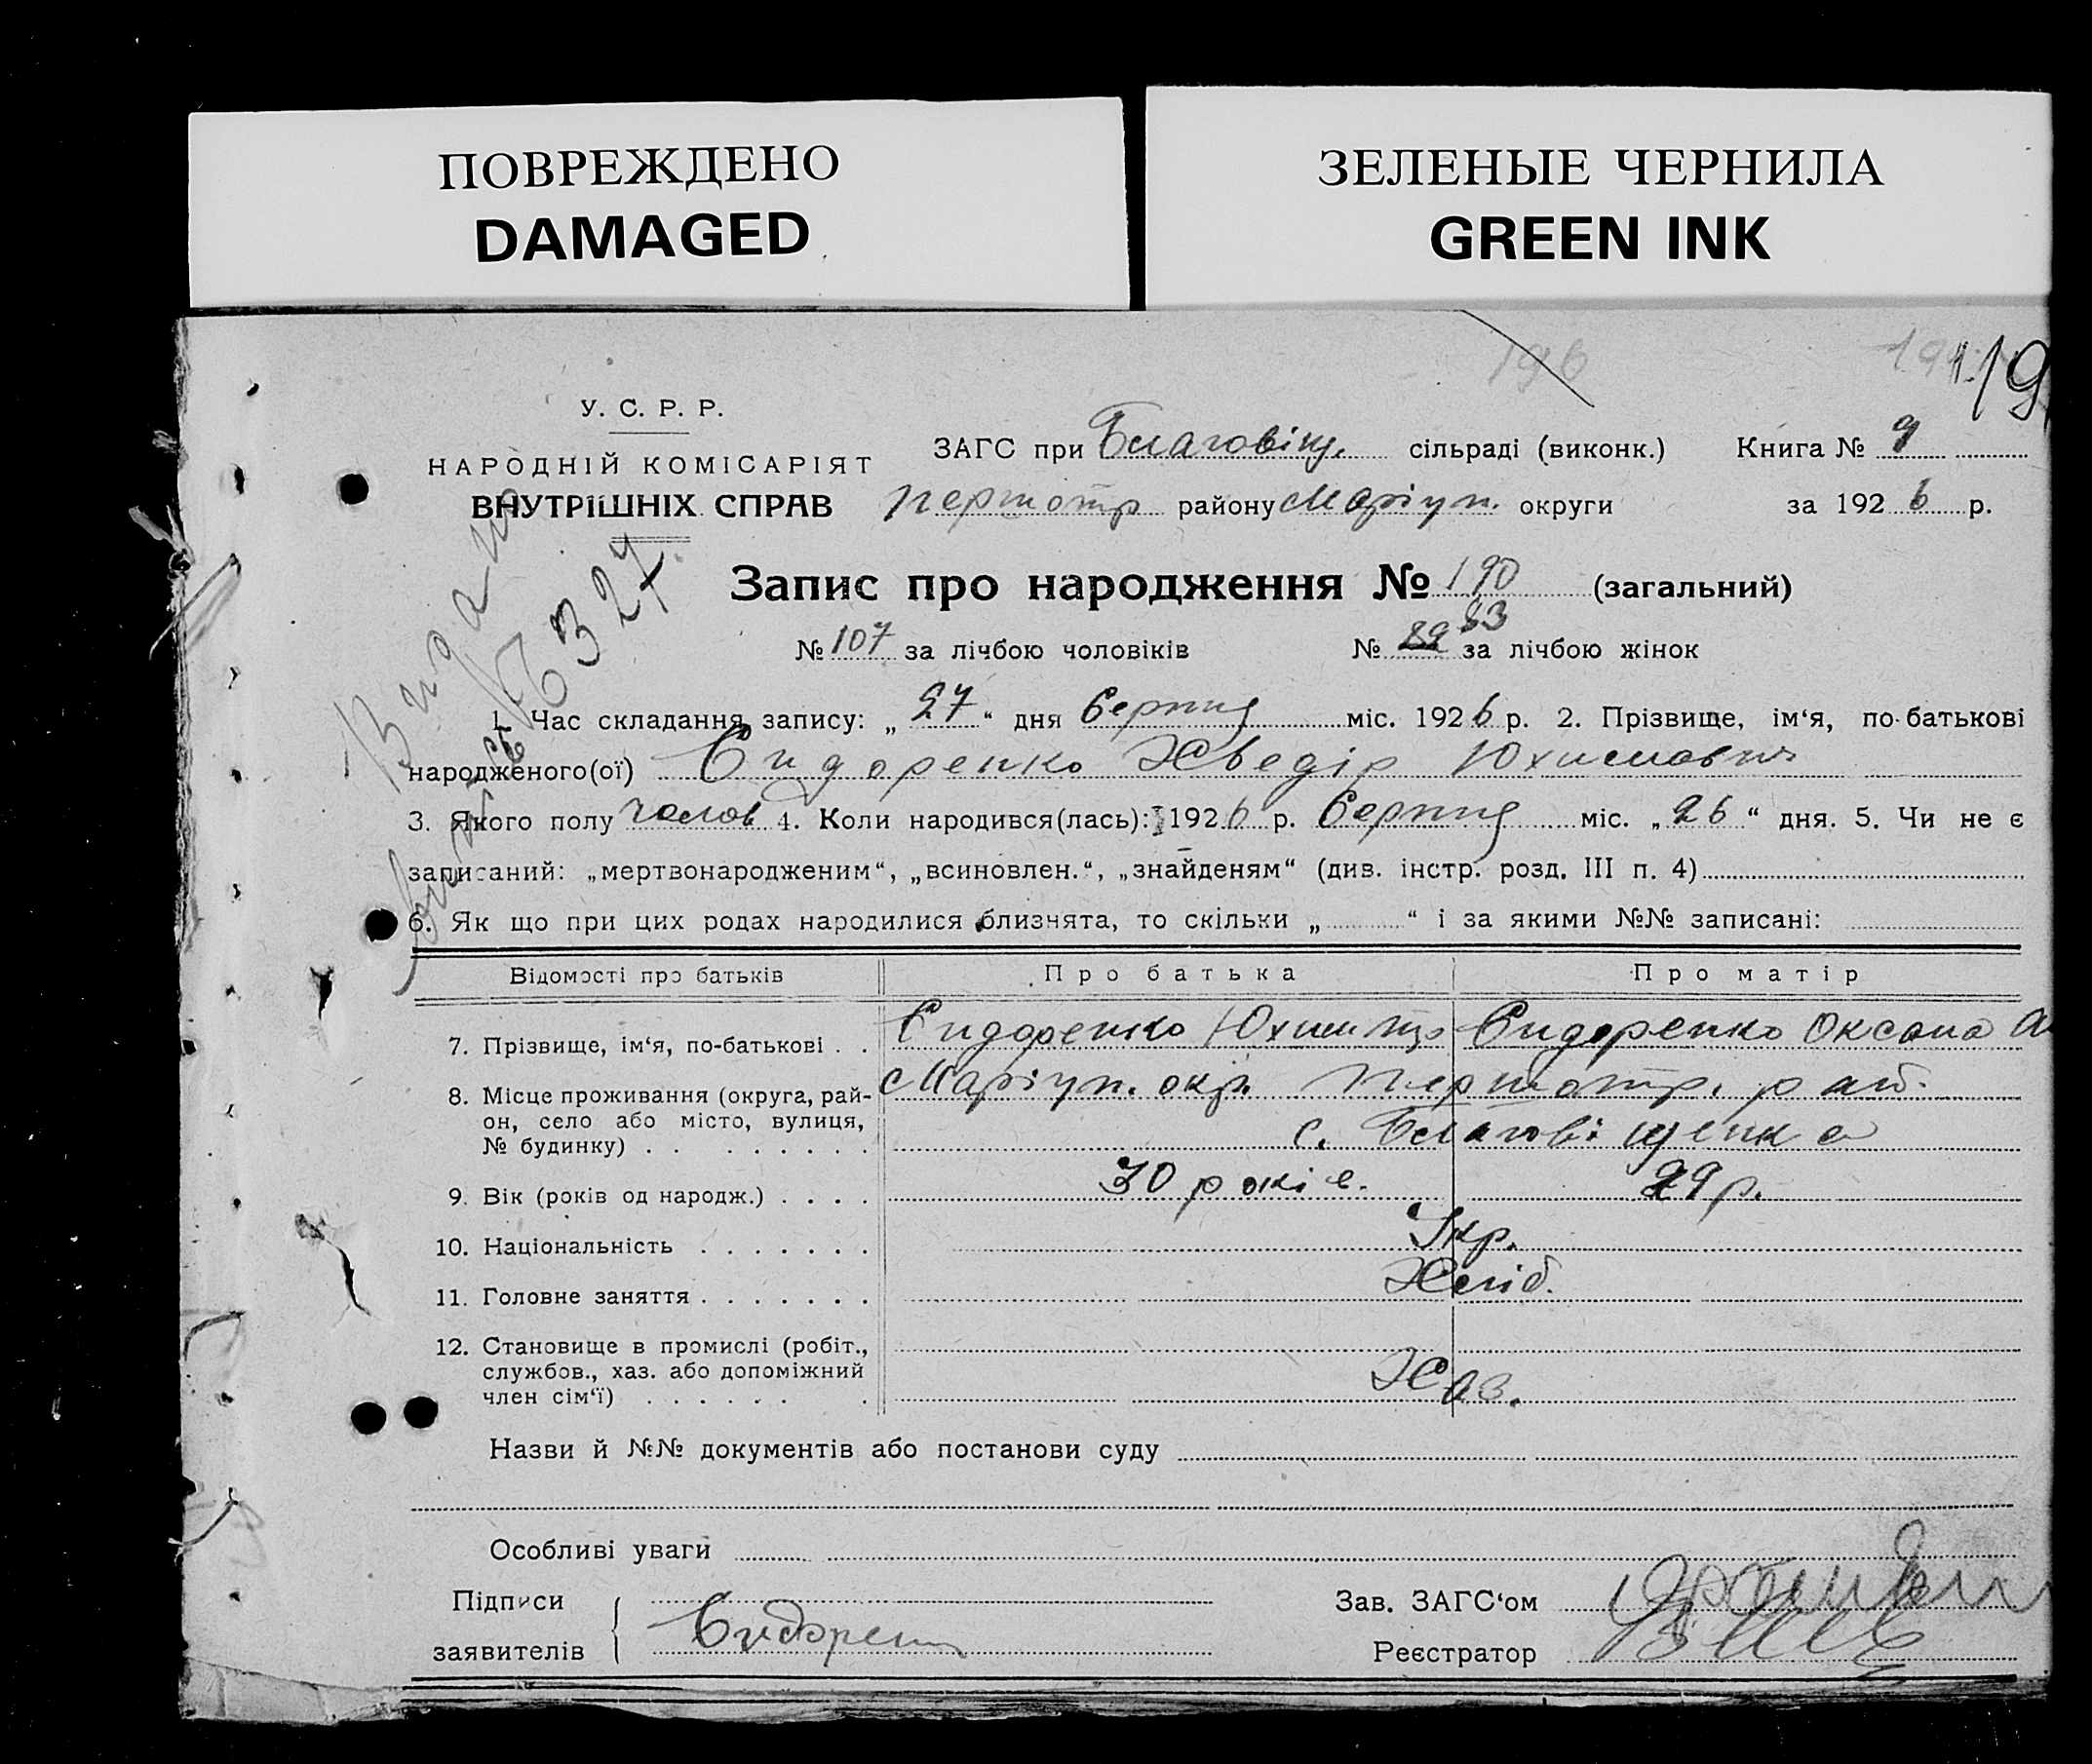 ПОВРЕЖДЕНО
DAMAGED
ЗЕЛЕНЫЕ ЧЕРНИЛА
GREEN INK
196
19
У. С. Р. Р.
НАРОДНІЙ КОМІСАРІЯТ
ВНУТРІШНІХ СПРАВ
ЗАГС при Благовіщ. сільраді (виконк.) Книга № 9
Першотр району Маріуп. округи за 1926 р.
Видано
6327
Запис про народження № 190 (загальний)
№ 107 за лічбою чоловіків № 89 83 за лічбою жінок
1. Час складання запису: „27“ дня Серпня міс. 1926 р. 2. Прізвище, ім‘я, по-батькові
народженого(ої) Сидоренко Хведір Юхимович
3. Якого полу чолов 4. Коли народився(лась): 1926 р. Серпня міс. „26“ дня. 5. Чи не є
записаний: „мертвонародженим“, „всиновлен.“, „знайденям“ (див. інстр. розд. III п. 4)
6. Як що при цих родах народилися близнята, то скільки „ “ і за якими №№ записані:
Відомості про батьків Про батька Про матір
7. Прізвище, ім‘я, по-батькові . . Сидоренко Юхим Сидоренко Оксана
8. Місце проживання (округа, рай- Маріуп. окр. Першотр. рай.
он, село або місто, вулиця,
№ будинку) с. Благовіщенка
9. Вік (років од народж.) . . . . 30 років. 29 р.
10. Національність . . . . . . . Укр.
11. Головне заняття . . . . . . . Хліб.
12. Становище в промислі (робіт.,
службов., хаз. або допоміжний
член сім‘ї) Хаз.
Назви й №№ документів або постанови суду
Особливі уваги
Підписи
заявителів Сидорен
Зав. ЗАГС‘ом
Реєстратор